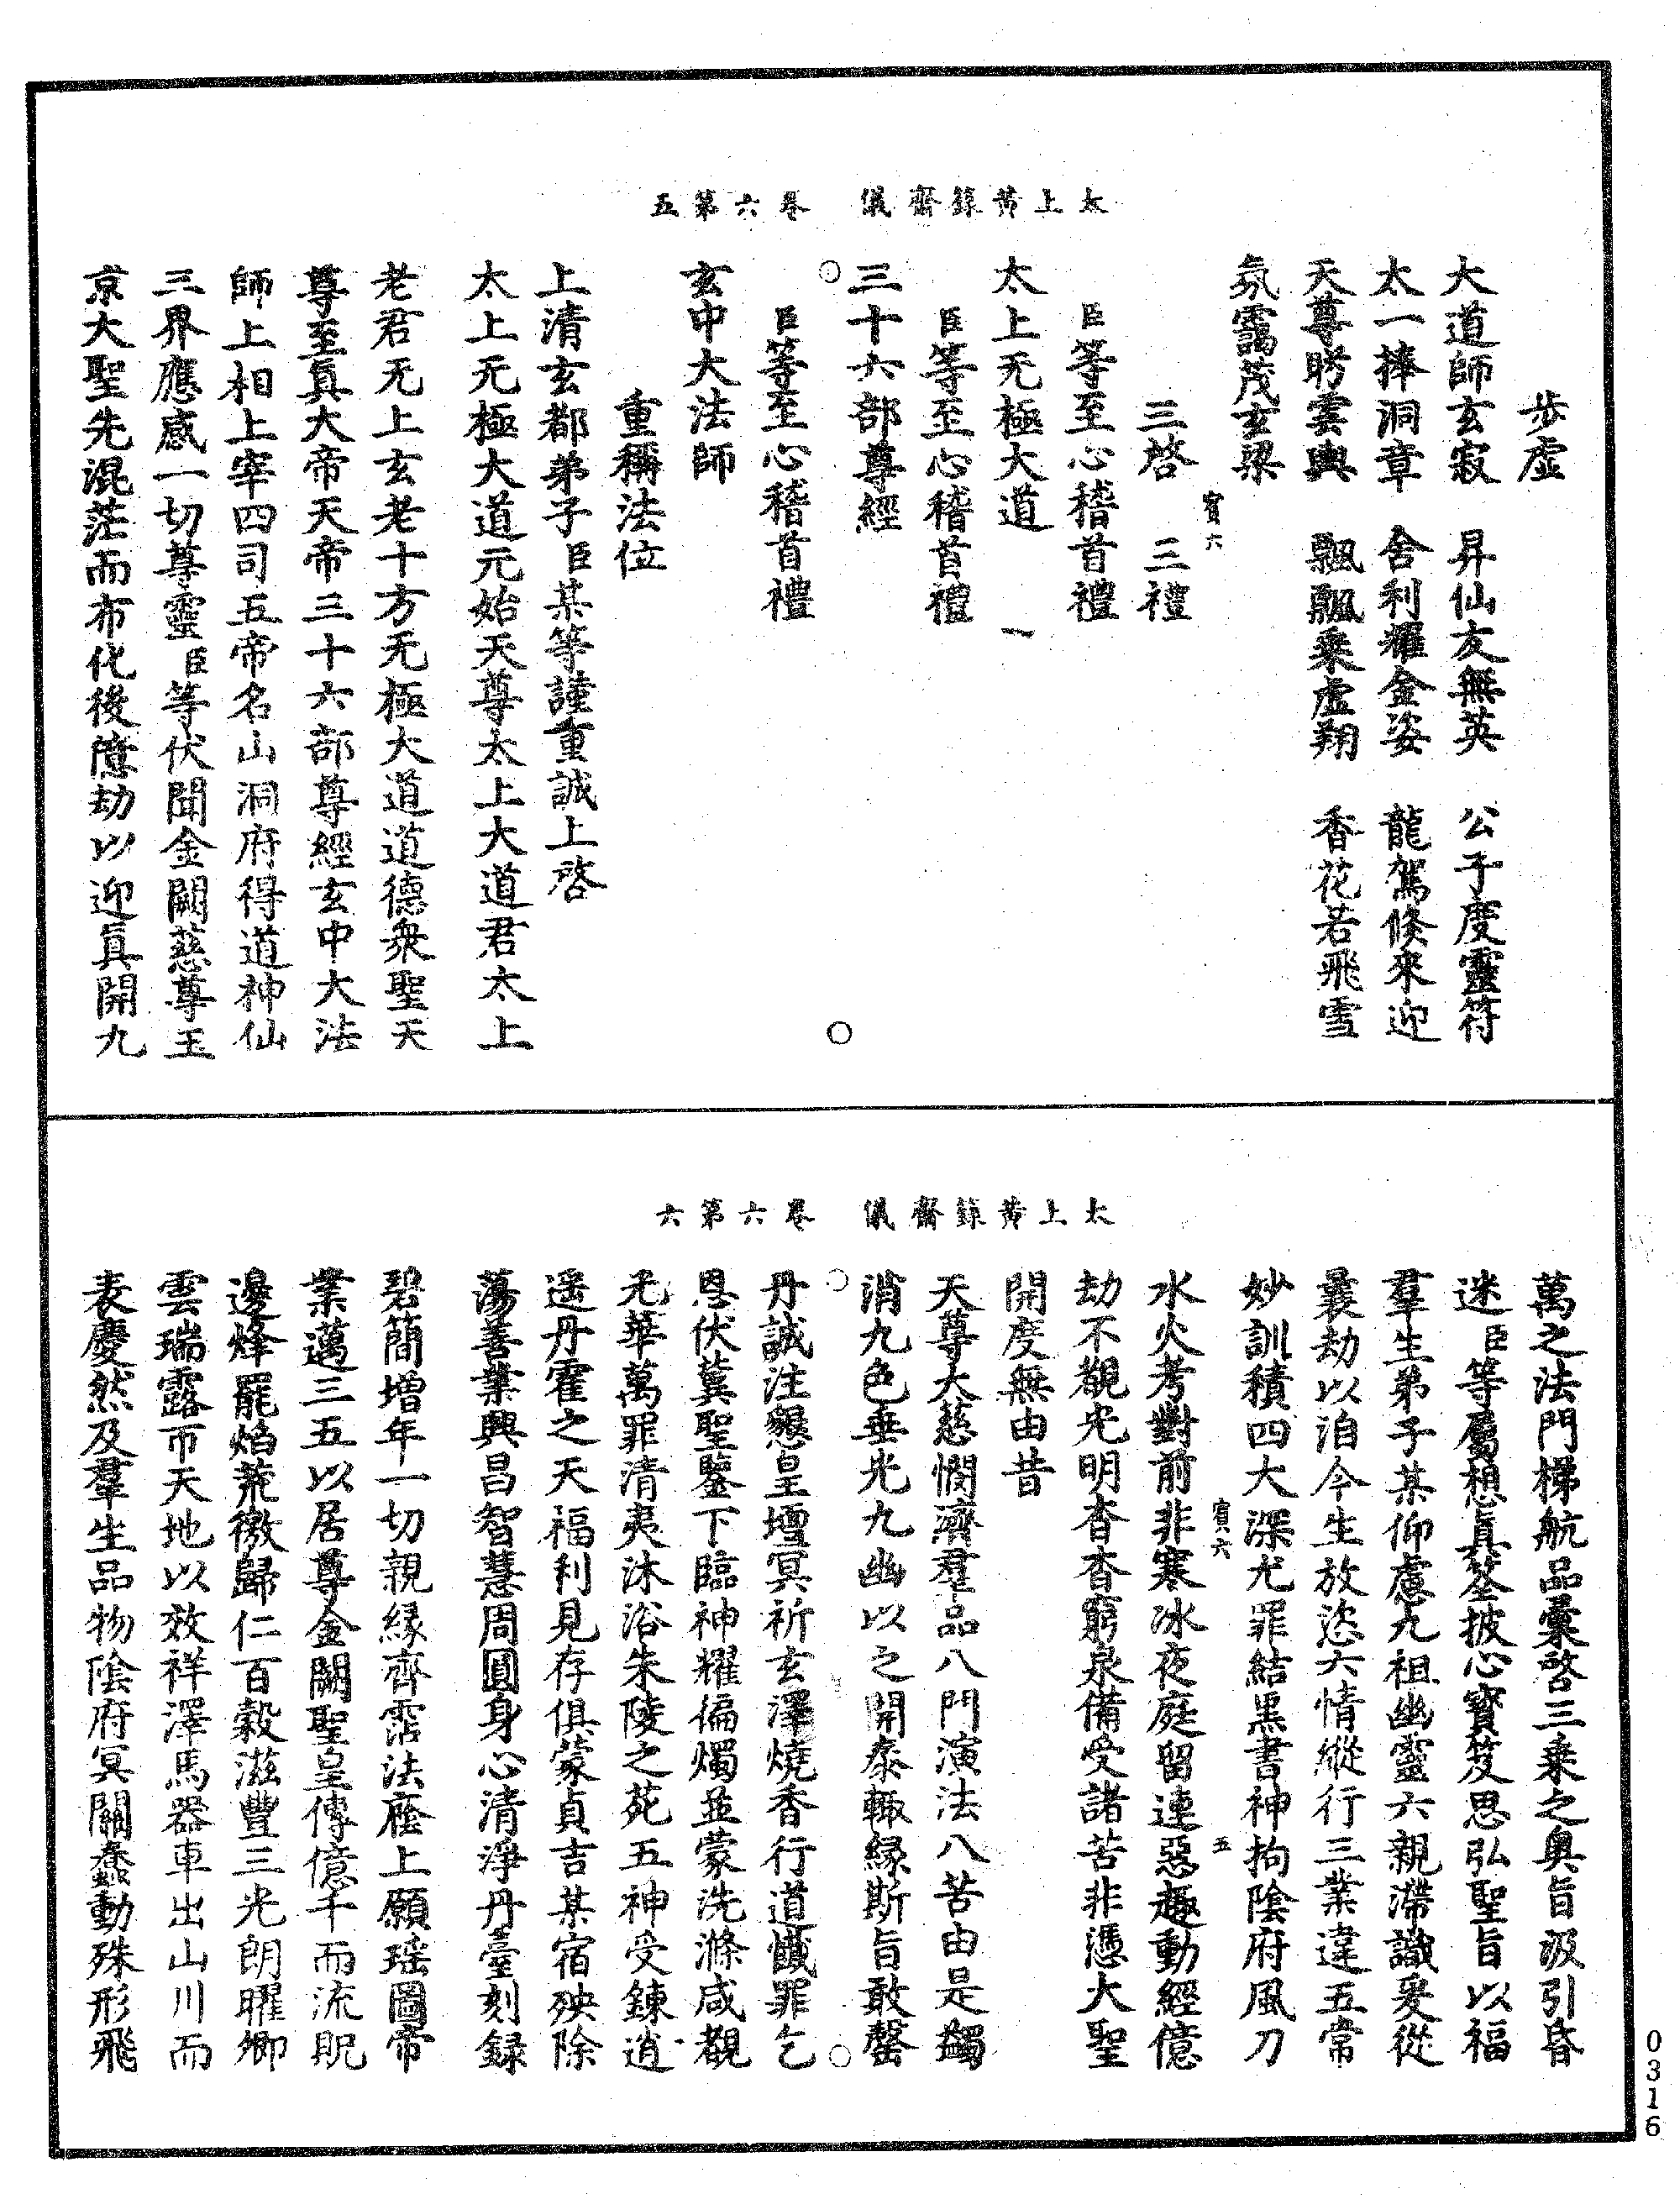 太上黃籙齋儀　卷六第五
步虛
大道師玄寂　昇仙友無英　公子度靈符
太一捧洞章　舍利耀金姿　龍駕倏來迎
天尊眄雲輿　飄飄乘虛翔　香花若飛雪
氛靄茂玄梁
賓六
三啓　三禮
臣等至心稽首禮
太上无極大道
臣等至心稽首禮
三十六部尊經
臣等至心稽首禮
玄中大法師
重稱法位
上清玄都弟子臣某等謹重誠上啓
太上无極大道元始天尊太上大道君太上
老君无上玄老十方无極大道道德衆聖天
尊至眞大帝天帝三十六部尊經玄中大法
師上相上宰四司五帝名山洞府得道神仙
三界應感一切尊靈臣等伏聞金闕慈尊玉
京大聖先混茫而布化後億劫以迎眞開九
太上黃籙齋儀　卷六第六
萬之法門梯航品彙啓三乘之奧旨汲引昏
迷臣等屬想眞筌披心寶笈思弘聖旨以福
羣生弟子某仰慮九祖幽靈六親滯識爰從
曩劫以洎今生放恣六情縱行三業違五常
妙訓積四大深尤罪結黑書神拘陰府風刀
賓六　五
水火考對前非寒冰夜庭留連惡趣動經億
劫不覩光明杳杳窮泉備受諸苦非憑大聖
開度無由昔
天尊大慈憫濟羣品八門演法八苦由是蠲
消九色垂光九幽以之開泰輒緣斯旨敢罄
丹誠注懇皇壇冥祈玄澤燒香行道懺罪乞
恩伏冀聖鑒下臨神耀徧燭並蒙洗滌咸覩
光華萬罪清夷沐浴朱陵之苑五神受鍊逍
遥丹霍之天福利見存俱蒙貞吉某宿殃除
蕩善業興昌智慧周圓身心清淨丹臺刻録
碧簡增年一切親緣齊霑法廕上願瑤圖帝
業邁三五以居尊金闕聖皇傳億千而流貺
邊烽罷焰荒徼歸仁百穀滋豐三光朗曜卿
雲瑞露帀天地以效祥澤馬器車出山川而
表慶然及羣生品物陰府冥關蠢動殊形飛
0316